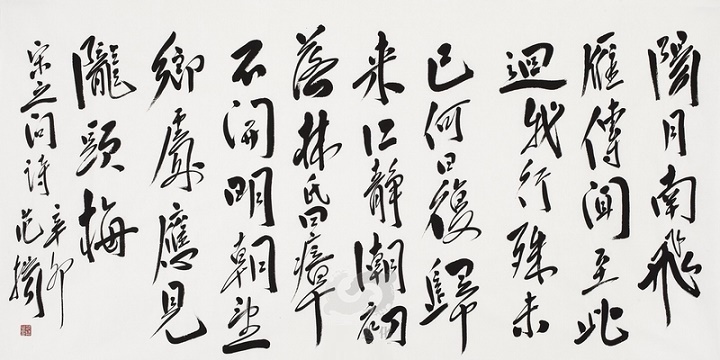 陽月南飛
雁傳聞至此
迴我行殊未
已何日復歸
来江静潮初
落林昏瘴
不開明朝望
鄉處應見
隴頭梅
宋之問詩
辛卯
范揚